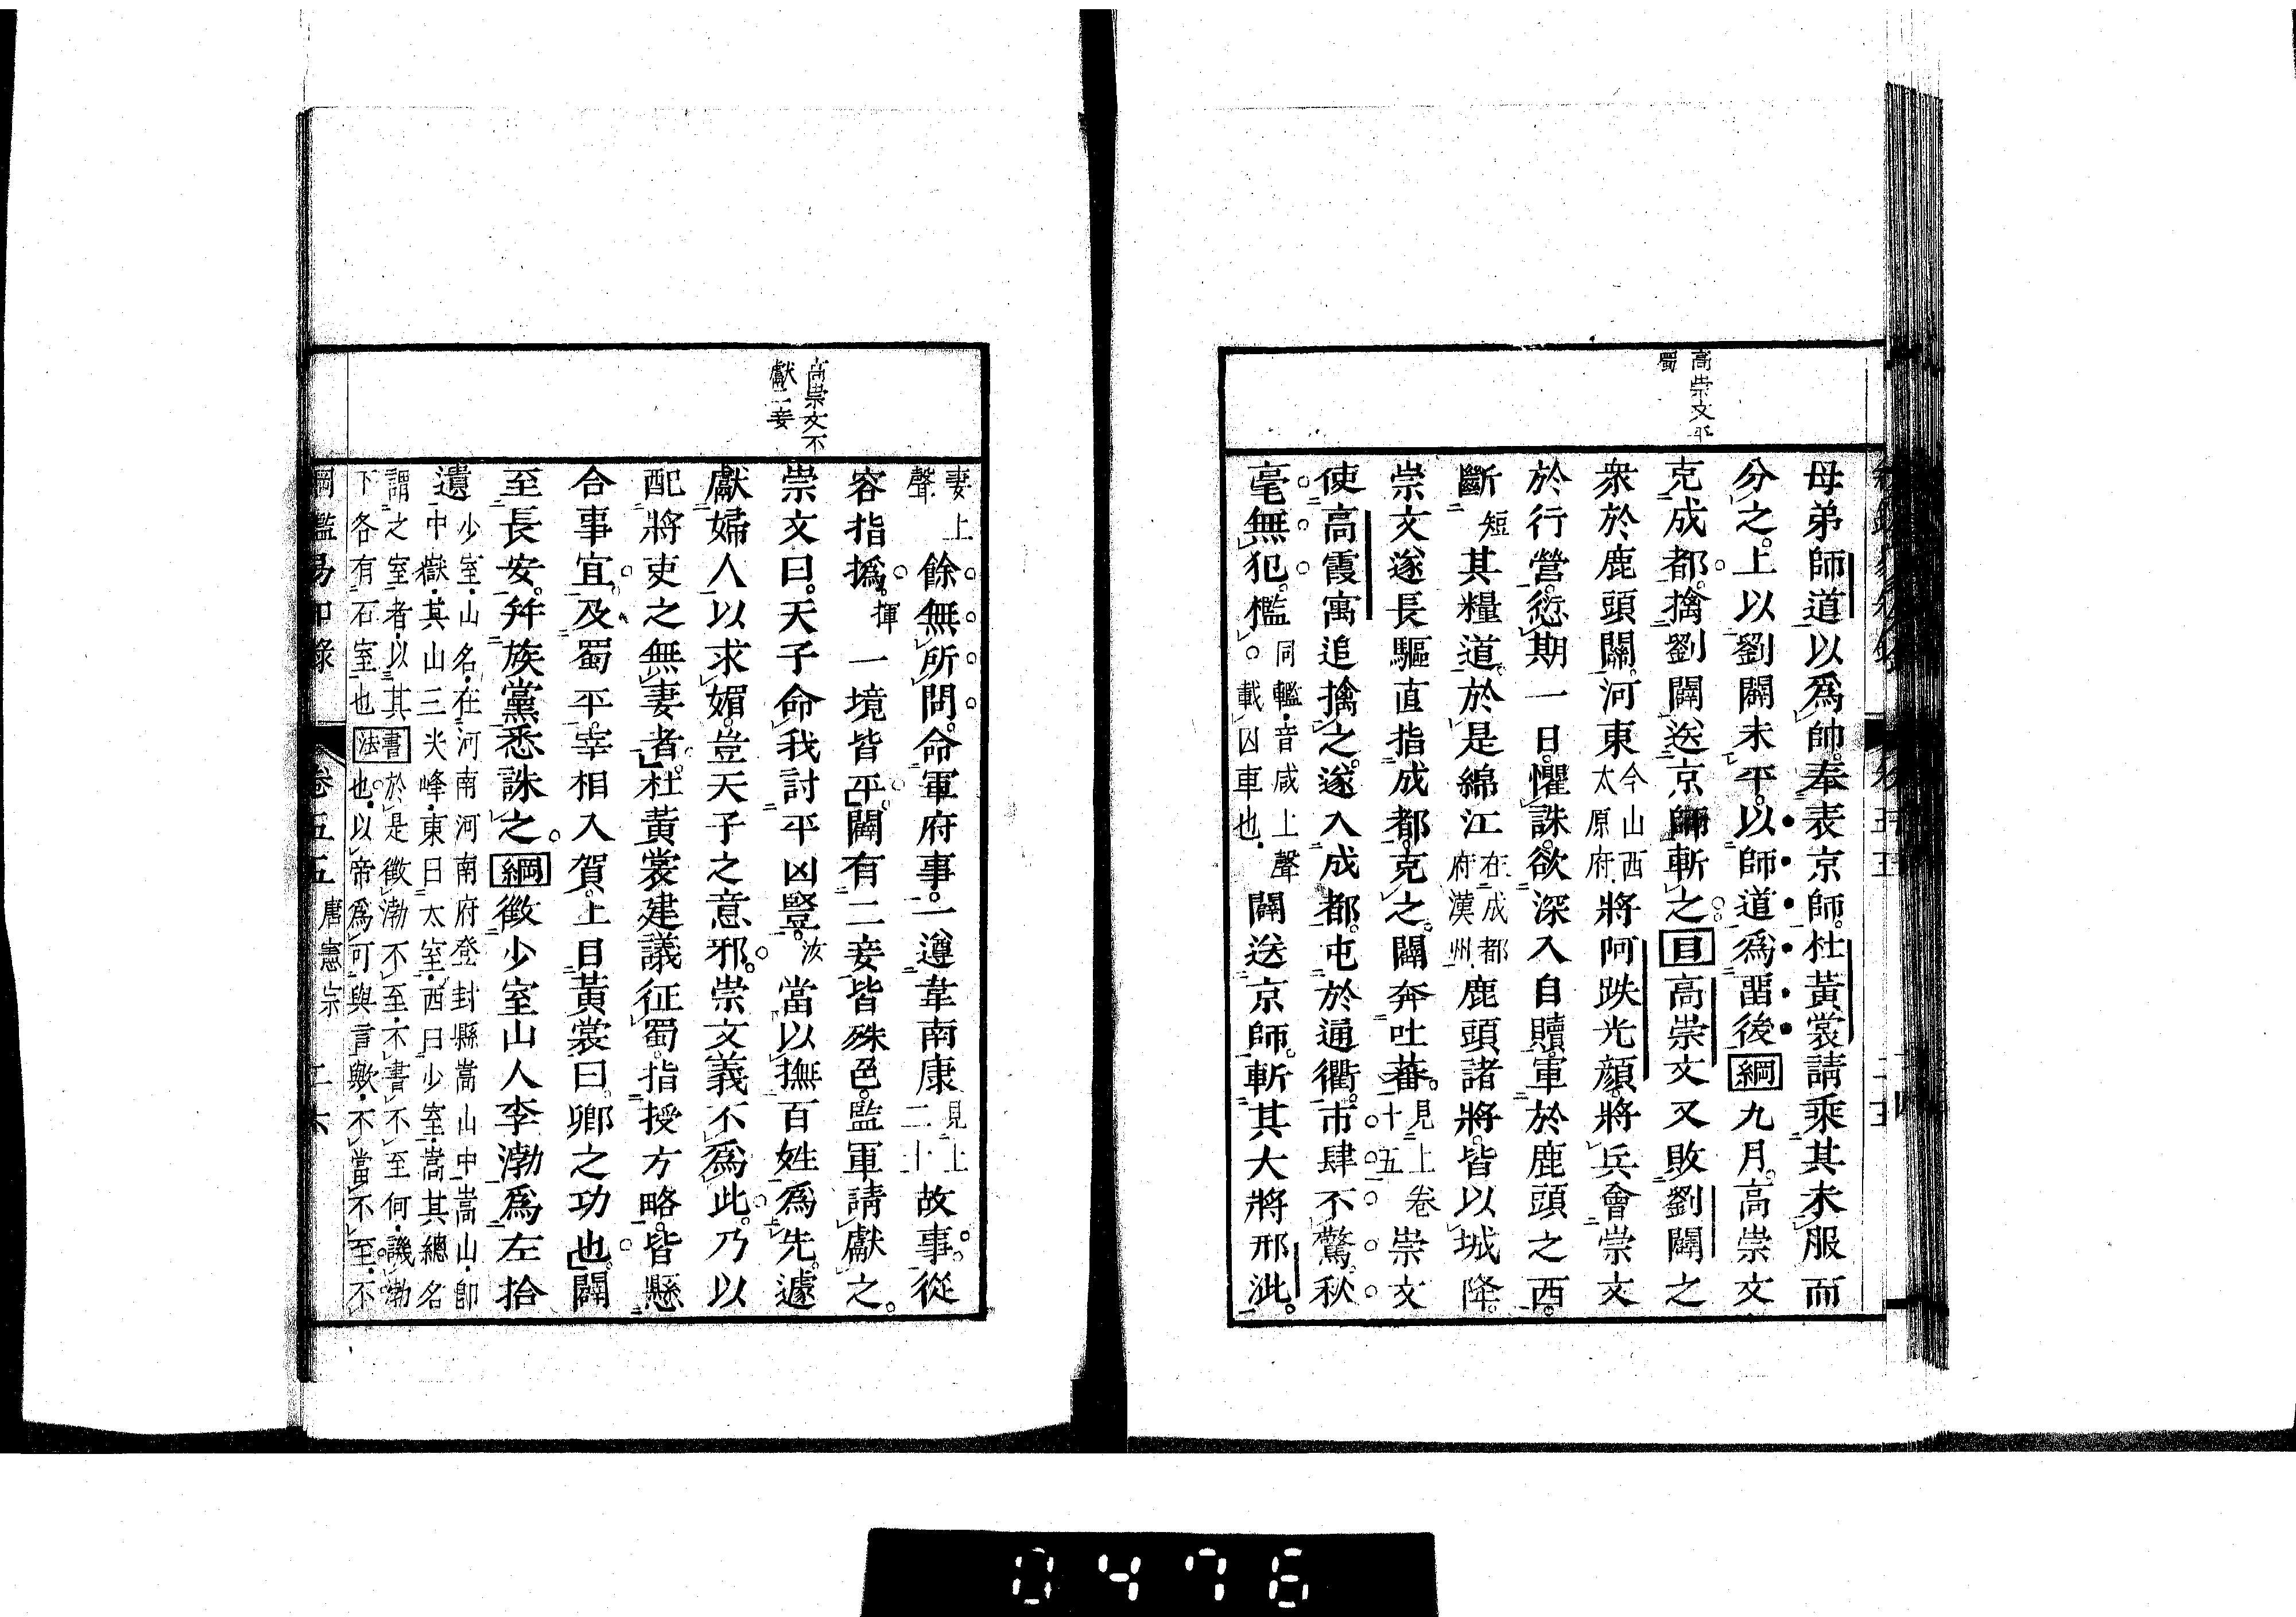 高崇文平
蜀
母弟師道以爲帥。奉表京師。杜黃裳請乘其未服而
分之。上以劉闢未平。以師道爲留後綱九月。高崇文
克成都。擒劉闢送京師斬之。目高崇文又敗劉闢之
衆於鹿頭關。河東今山西太原府。將阿跌光顔。將兵會崇文
於行營。愆期一日。懼誅。欲深入自贖。軍於鹿頭之西。
斷短其糧道。於是綿江在成都府漢州。鹿頭諸將。皆以城降。
崇文遂長驅直指成都。克之。闢奔吐蕃。見上卷十五崇文
使高霞寓追擒之。遂入成都。屯於通衢。市肆不驚。秋
毫無犯。檻同轞。音咸上聲。載囚車也。闢送京師。斬其大將邢泚。
高崇文不
獻二妾
妻上聲餘無所問。命軍府事。一遵韋南康見上二十故事。從
容指撝。揮一境皆平。闢有二妾。皆殊色。監軍請獻之。
崇文曰。天子命我討平凶豎。汝當以撫百姓爲先。遽
獻婦人以求媚。豈天子之意邪。崇文義不爲此。乃以
配將吏之無妻者。杜黃裳建議征蜀。指授方略。皆懸
合事宜。及蜀平。宰相入賀。上目黃裳曰。卿之功也。闢
至長安。幷族黨悉誅之。綱徵少室山人李渤爲左拾
遺少室。山名。在河南河南府登封縣嵩山中嵩山。卽
中嶽。其山三尖峰。東曰太室。西曰少室。嵩其總名
謂之室者。以其書於是徵渤不至。不書不至何。譏渤
下各有石室也法也。以帝爲可與言歟。不當不至。不
綱鑑易知錄 卷五五 唐憲宗 二六
0476